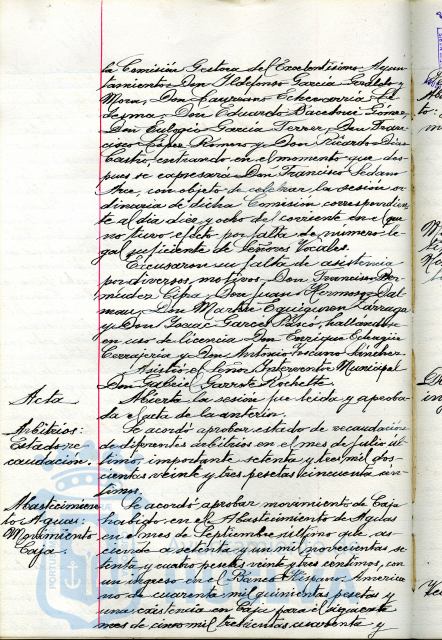 la Comisión Gestora del Excelentísimo Ayun-
tamiento Don Ildefonso García
Mora, Don Laureano Echevarría
Don Eduardo Gómez,
Don Eulogio García Ferrer, Don Fran-
cisco López Romero y Don Ricardo Díaz
Castro, entrando en el momento que des-
pues se expresara Don Francisco Sedano
Arce, con objeto de celebrar la sesión or-
dinaria de dicha Comisión correspondien-
te al dia diez y ocho del corriente en el que
no tuvo efecto por falta de número le-
gal suficiente de Señores Vocales.
Excusaron su falta de asistencia
por diversos motivos, Don Francisco Ber-
mudez Don Juan Hermoso
Don Martín
y Don Isaac García hallandose
en uso de licencia Don Enrique
y Don Antonio Sánchez.
Asistió el Señor Interventor Municipal
Don Gabriel Garrote
Acta
Abierta la sesión fue leida y aproba-
da el acta de la anterior.
Arbitrios:
Estado re-
caudación.
Se acordó aprobar estado de recaudación
de diferentes arbitrios en el mes de julio úl-
timo, importante setenta y tres mil dos-
cientas veinte y tres pesetas cincuenta cen-
timos.
Abastecimien-
to Aguas:
Movimiento
Caja.
Se acordó aprobar movimiento de Caja
habido en el Abastecimiento de Aguas
en el mes de Septiembre último que as-
ciende a setenta y un mil novecientas se-
tenta y cuatro pesetas veinte y tres centimos, con
un ingreso en el Banco Hispano America-
no de cuarenta mil quinientas pesetas y
una existencia en Caja para el siguiente
mes de cinco mil trescientas cuarenta y